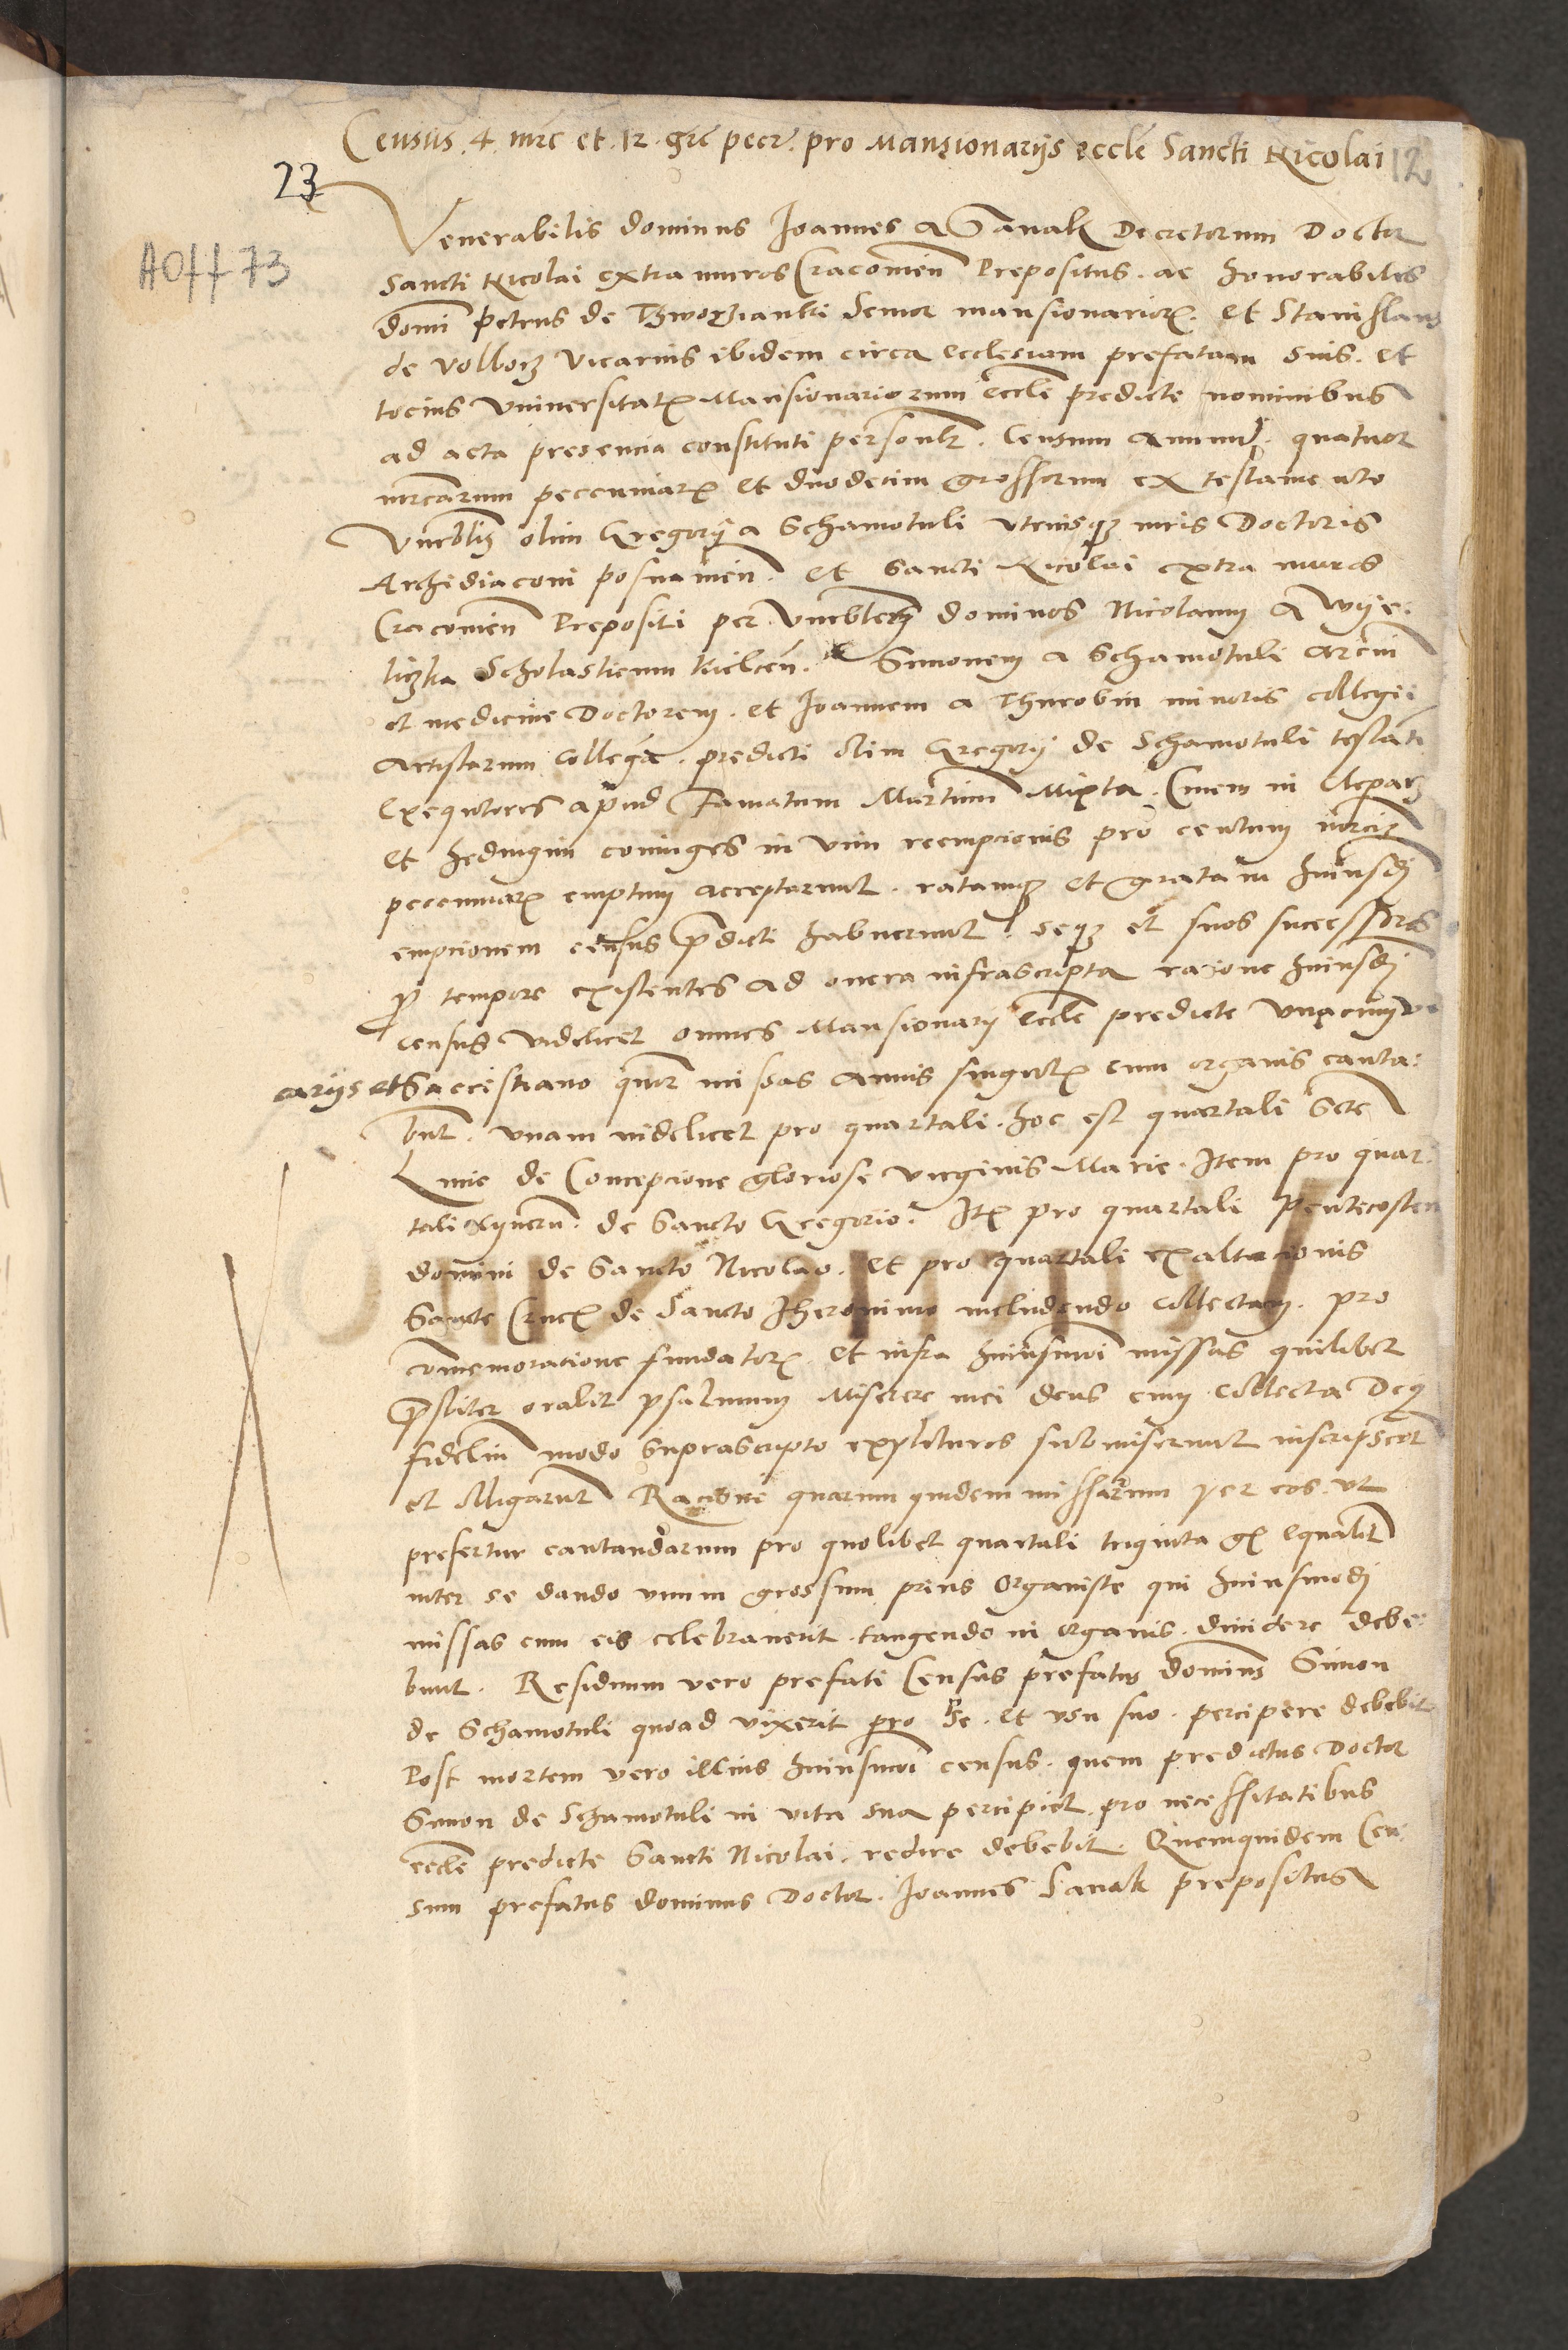 Census .4. mrc et .12. gr pecr. pro Mansionariis eccle Sancti Nicolai 12
23
AOff 73
Venerabilis dominus Joannes a Sanok Decretorum Doctor
Sancti Nicolai extra muros Cracovien Prepositus. ac honorabiles
domi Petrus de Thworzianki Senior mansionarior. et Stanislaus
de Volborz Vicarius ibidem circa ecclesiam prefatam suis. et
tocius Universitatis Mansionariorum eccle predicte nominibus
ad acta presencia constituti personlr. Censum annuum. quatuor
mrcarum pecuniar et duodecim grossorum ex testamento
Vnerblis olim Gregorii a Schamotuli utriusque iuris Doctoris
Archidiaconi posnanien. et Sancti Nicolai extra muros
Cracovien Prepositi per Vnerbles dominos Nicolaum a Wye-
liczka Scholasticum Kielcen. Simonem a Schamotuli arcium
et medicine Doctorem. et Joannem a Thurobin minoris collegii
Artistarum Collega. predicti olim Gregorii de Schamotuli testati
Exequtores apud Famatum Martinu Mixta. Civem in Cleparz
et Hedvigim coniuges in vim reempcionis pro centum mrcis
pecuniar emptum acceptarunt. ratamque et gratam huiusdi
empcionem census pdicti habuerunt. seque et suos successores
p tempore existentes ad onera infrascripta racione huiusdi
census videlicet omnes Mansionarii eccle predicte unacum vi
cariis et Sacristiano quor missas annis singulis cum organis canta-
bunt. unam videlicet pro quartali. hoc est quartali Scte
Lucie de Concepcione gloriose virginis Marie. Item pro quar-
tali Cynerum. de Sancto Gregorio. Itm pro quartali Pentecosten
domini de Sancto Nicolao. et pro quartali exaltacionis
Sancte Crucis de Sancto Iheronimo includendo collectam. pro
commemoratione fundatorum. et infra huiusmoi missas quilibet
psbiter orabit psalmum Miserere mei deus cum collecta Deus
fidelium modo suprascripto expleturos submiserunt inscripserunt
et obligarunt Racione quarum quidem missarum per eos. ut
prefertur cantandarum pro quolibet quartali triginta gr equalit
inter se dando unum grossum prius Organiste qui huiusmodi
missas cum eis celebraverit. tangendo in organis. dividere debe-
bunt. Residuum vero prefati Census prefatus dominus Simon
de Schamotuli quoad vixerit pro se. et usu suo. percipere debebit
Post mortem vero illius huiusmoi census. quem predictus Doctor
Simon de Schamotuli in vita sua percipiet pro necessitatibus
eccle predicte Sancti Nicolai. redire debebit. Quemquidem Cen-
sum prefatus dominus Doctor. Joannes Sanok prepositus